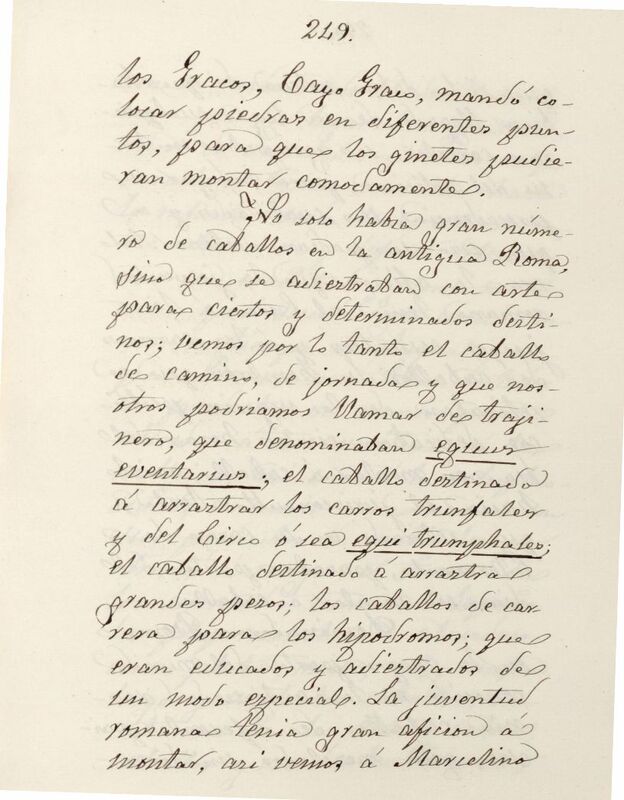 249.
los Gracos, Cayo Graco, mandó co-
locar piedras en diferentes pun-
tos, para que los ginetes pudie-
ran montar comodamente.
No solo habia gran núme-
ro de caballos en la antigua Roma,
sino que se adiestraban con arte
para ciertos y determinados desti-
nos; vemos por lo tanto el caballo
de camino, de jornada y que nos-
otros podriamos llamar de traji-
nero, que denominaban equus
eventarius; el caballo destinado
á arrastrar los carros trunfales
y del Circo ó sea equi trumphales;
el caballo destinado á arrastra
grandes pesos; los caballos de car-
rera para los hipodromos; que
eran educados y adiestrados de
un modo especial. La juventud
romana tenia gran aficion á
montar, asi vemos á Marcelino